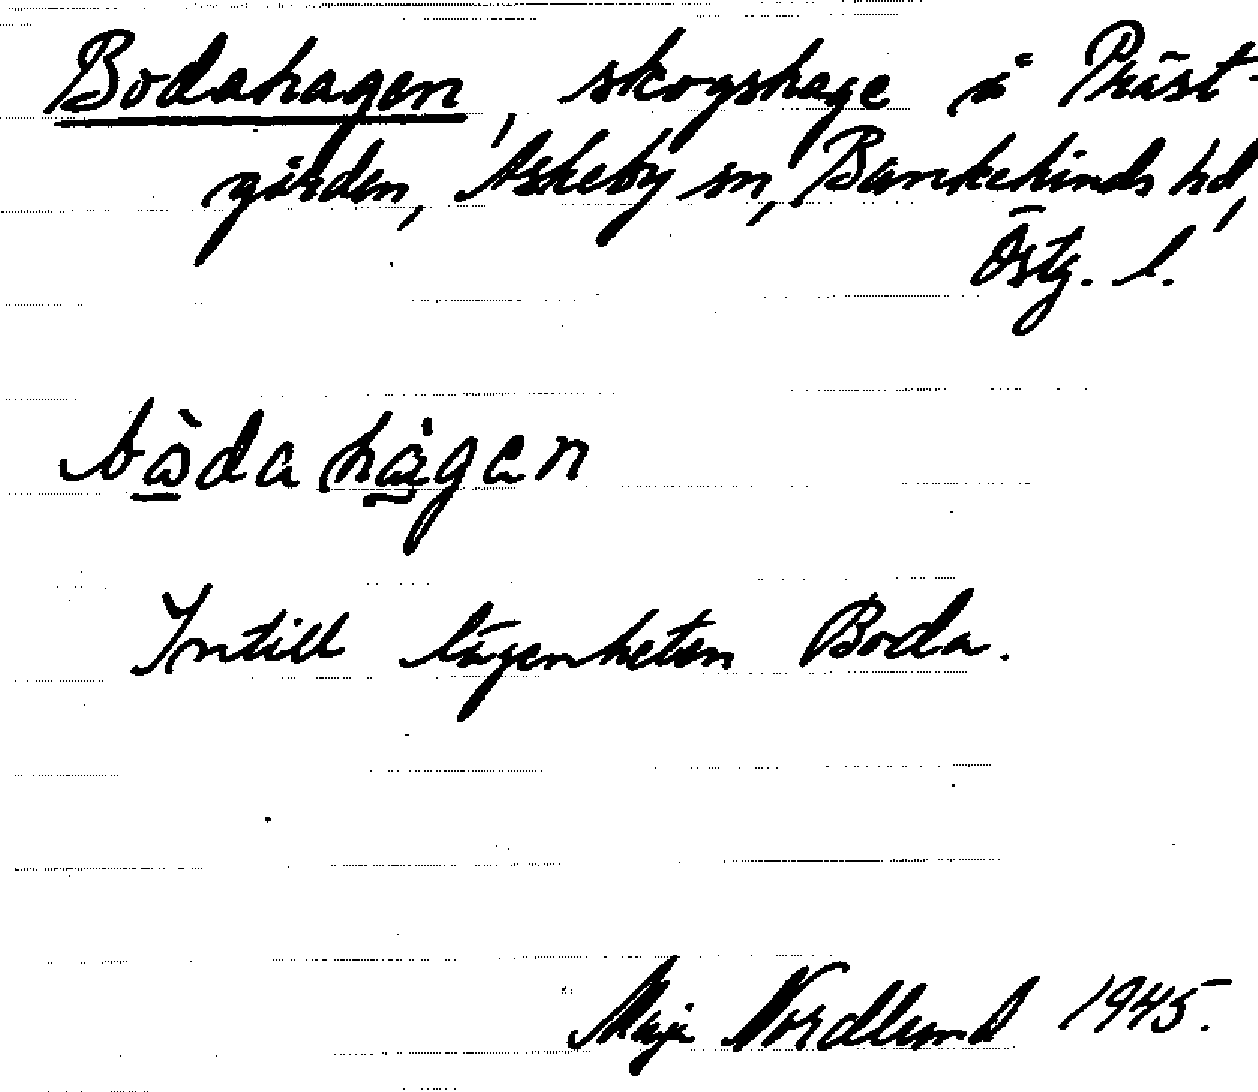 Bodahagen, skogshage i Präst-
gården, Askeby sn, Bankekinds hd,
Östg. l.
bòdahȧgen
Intill lägenheten Boda.
Maja Nordlund 1945.